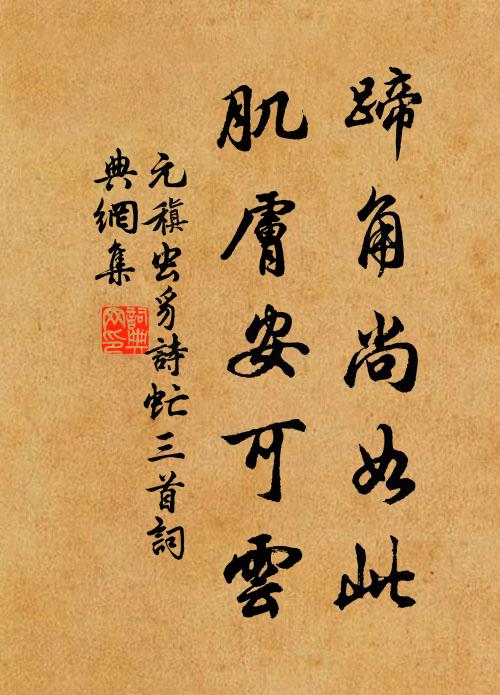 蹄角尚如此
肌膚安可雲
元稹虫豸詩虻三首詞
典網集
詞典網印